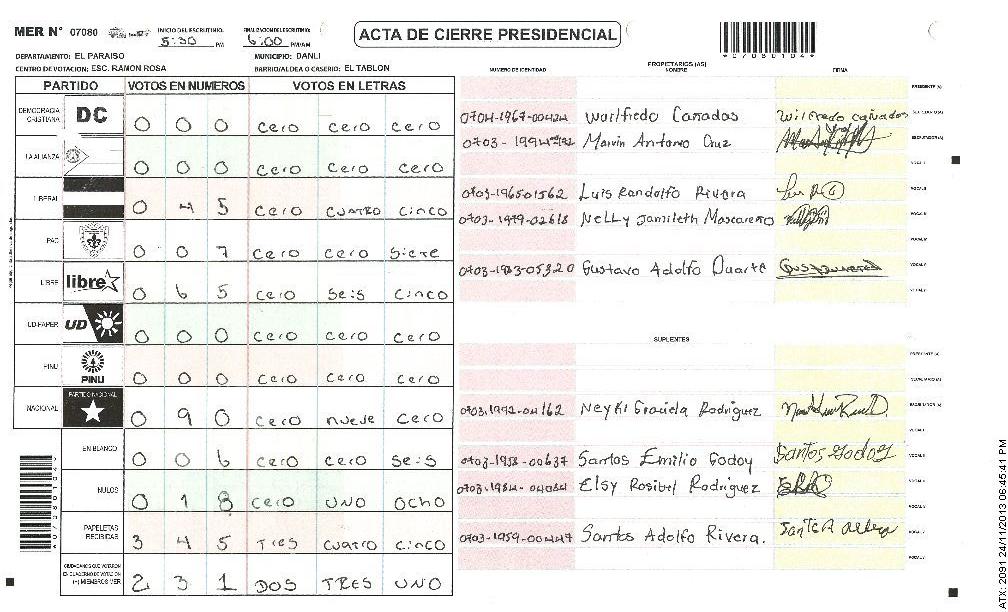 MER N° 07080 INICIO DEL ESCRUTINIO: 5:30 PM FINALIZACION DEL ESCRUTINIO: 6:00 PM/AM
ACTA DE CIERRE PRESIDENCIAL
DEPARTAMENTO: EL PARAISO MUNICIPIO: DANLI
CENTRO DE VOTACION: ESC. RAMON ROSA BARRIO/ALDEA O CASERIO: EL TABLON
PARTIDO VOTOS EN NUMEROS VOTOS EN LETRAS
DEMOCRACIA CRISTIANA DC 0 0 0 cero cero cero
LA ALIANZA 0 0 0 cero cero cero
LIBERAL 0 4 5 cero cuatro cinco
PAC 0 0 7 cero cero siete
LIBRE libre 0 6 5 cero seis cinco
UD-FAPER UD 0 0 0 cero cero cero
PINU PINU 0 0 0 cero cero cero
NACIONAL PARTIDO NACIONAL 0 9 0 cero nueve cero
EN BLANCO 0 0 6 cero cero seis
NULOS 0 1 8 cero UNO OCHO
PAPELETAS RECIBIDAS 3 4 5 Tres cuatro cinco
CIUDADANOS QUE VOTARON EN CUADERNO DE VOTACION (+) MIEMBROS MER 2 3 1 DOS TRES UNO
PROPIETARIOS (AS)
NUMERO DE IDENTIDAD NOMBRE FIRMA
PRESIDENTE (A)
0704-1967-00424 Wuilfredo Cañadas Wilfredo cañadas SECRETARIO (A)
Marvin Antonio Cruz ESCRUTADOR (A)
VOCAL I
0703-196501562 Luis Randolfo Rivera VOCAL II
0703-1979-02618 Nelly Jamileth Moscareño VOCAL III
VOCAL IV
Gustavo Adolfo Duarte VOCAL V
VOCAL VI
SUPLENTES
PRESIDENTE (A)
SECRETARIO (A)
0703-1992-04162 Neyki Graciela Rodriguez ESCRUTADOR (A)
VOCAL I
0703-1953-00637 Santos Emilio Godoy Santos Godoy VOCAL II
0703-1984-04084 Elsy Rosibel Rodriguez VOCAL III
VOCAL IV
0703-1959-00447 Santos Adolfo Rivera. VOCAL V
VOCAL VI
ATX: 2091 24/11/2013 06:45:41 PM